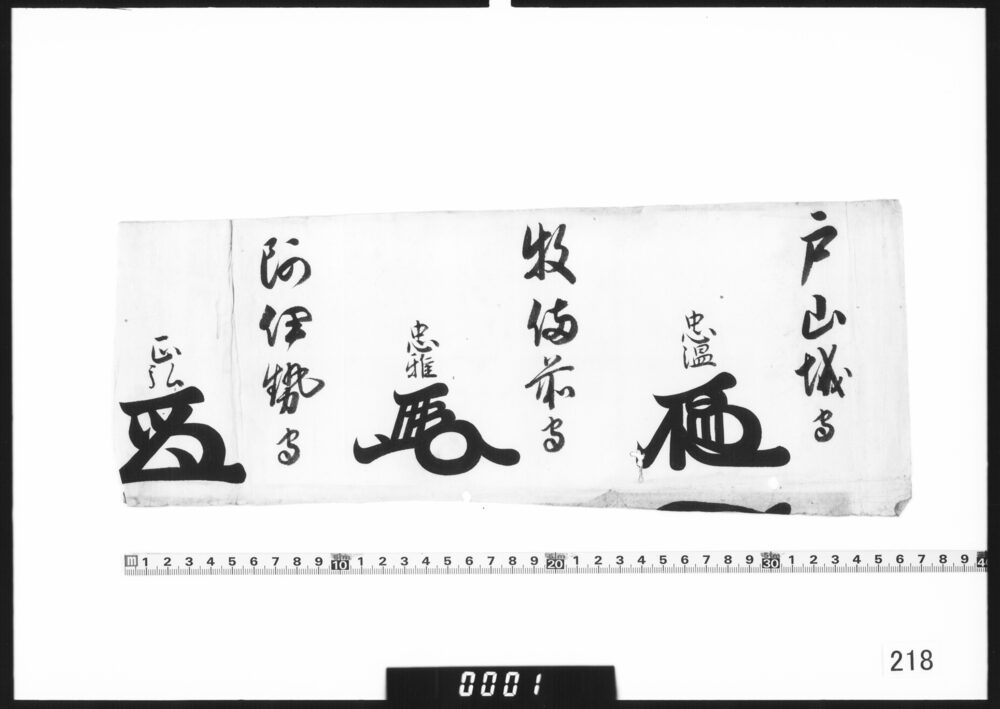 戸山城守
忠温
牧備前守
忠雅
阿伊勢守
正弘
m 1 2 3 4 5 6 7 8 9 10 1 2 3 4 5 6 7 8 9 20 1 2 3 4 5 6 7 8 9 30 1 2 3 4 5 6 7 8 9 4
218
0001